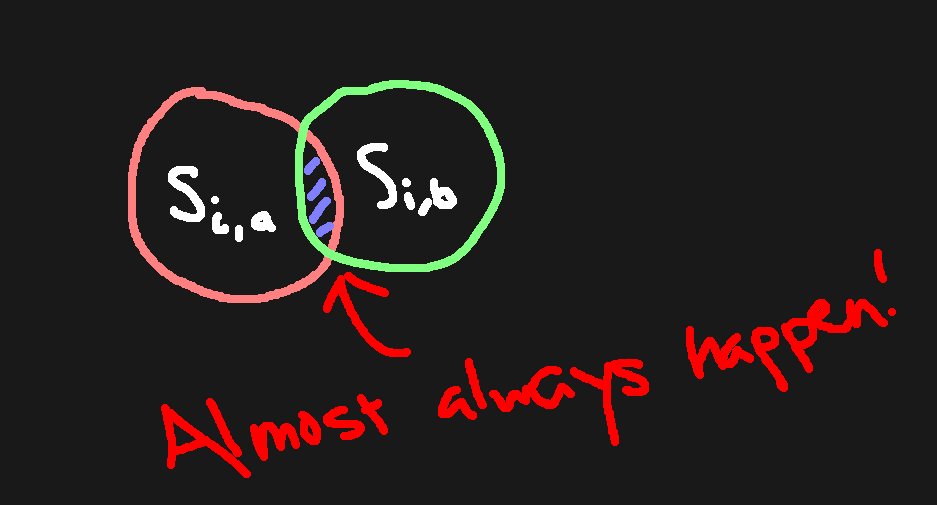 S_{i,a} S_{i,b}
Almost always happen!